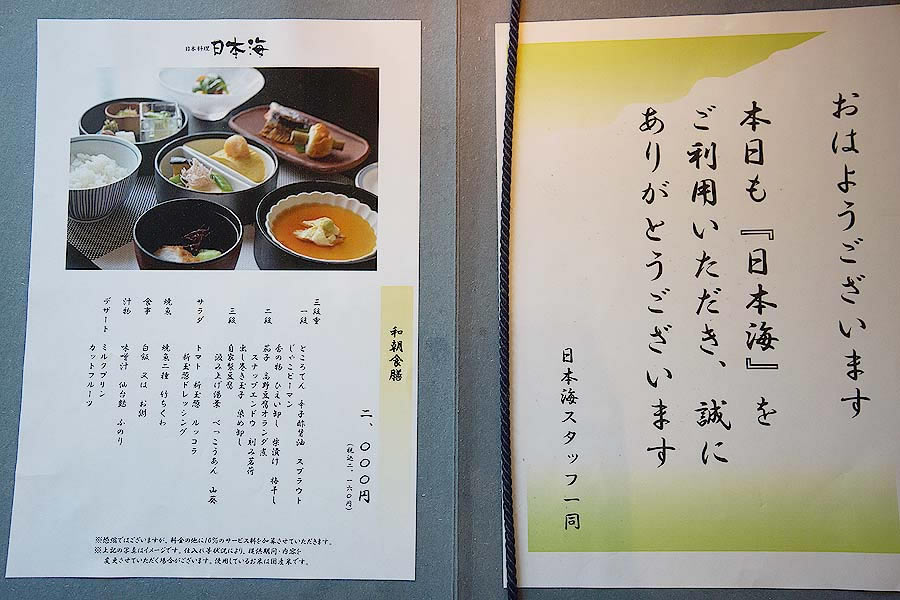 日本料理 日本海
和朝食膳
二、〇〇〇円
(税込二、一六〇円)
三段重
一段 ところてん 辛子酢醤油 スプラウト
じゃこピーマン
香の物 ひえい卸し 柴漬け 梅干し
二段 茄子 高野豆腐オランダ煮
スナップエンドウ 刻み茗荷
出し巻き玉子 染め卸し
三段 自家製豆腐
汲み上げ湯葉 べっこうあん 山葵
サラダ トマト 新玉葱 ルッコラ
新玉葱ドレッシング
焼魚 焼魚二種 竹ちくわ
食事 白飯 又は お粥
汁物 味噌汁 仙台麩 ふのり
デザート ミルクプリン
カットフルーツ
※恐縮ではございますが、料金の他に10%のサービス料を加算させていただきます。
※上記の写真はイメージです。仕入れ等状況により、提供期間・内容を
変更させていただく場合がございます。使用しているお米は国産米です。
おはようございます
本日も『日本海』を
ご利用いただき、誠に
ありがとうございます
日本海スタッフ一同